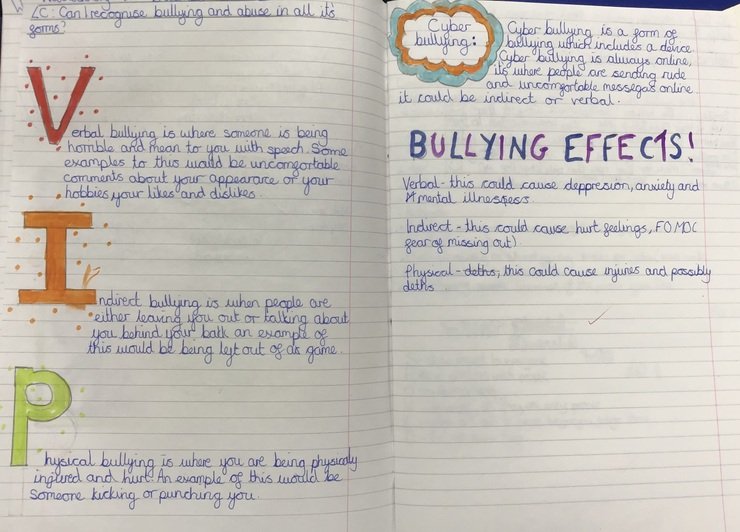 LC: Can I recognise bullying and abuse in all it's
forms?
Verbal bullying is where someone is being
horrible and mean to you with speech. Some
examples to this would be uncomfortable
comments about your appearance or your
hobbies, your likes and dislikes.
Indirect bullying is when people are
either leaving you out or talking about
you behind your batk an example of
this would be being left out of as game.
Physical bullying is where you are being physicaly
ingured and hurt. An example of this would be
someone kicking or punching you.
Cyber
bullying:
Cyber bullying is a form of
bullying which includes a device.
Cyber bullying is always online,
its where people are sending rude
and uncomfortable messegas online
it could be indirect or verbal.
BULLYING EFFECTS!
Verbal - this could cause deppresion, anxiety and
mental illnesses.
Indirect - this could cause hurt feelings, FOMO(
fear of missing out)
Physical - deths, this could cause injures and possibly
deths